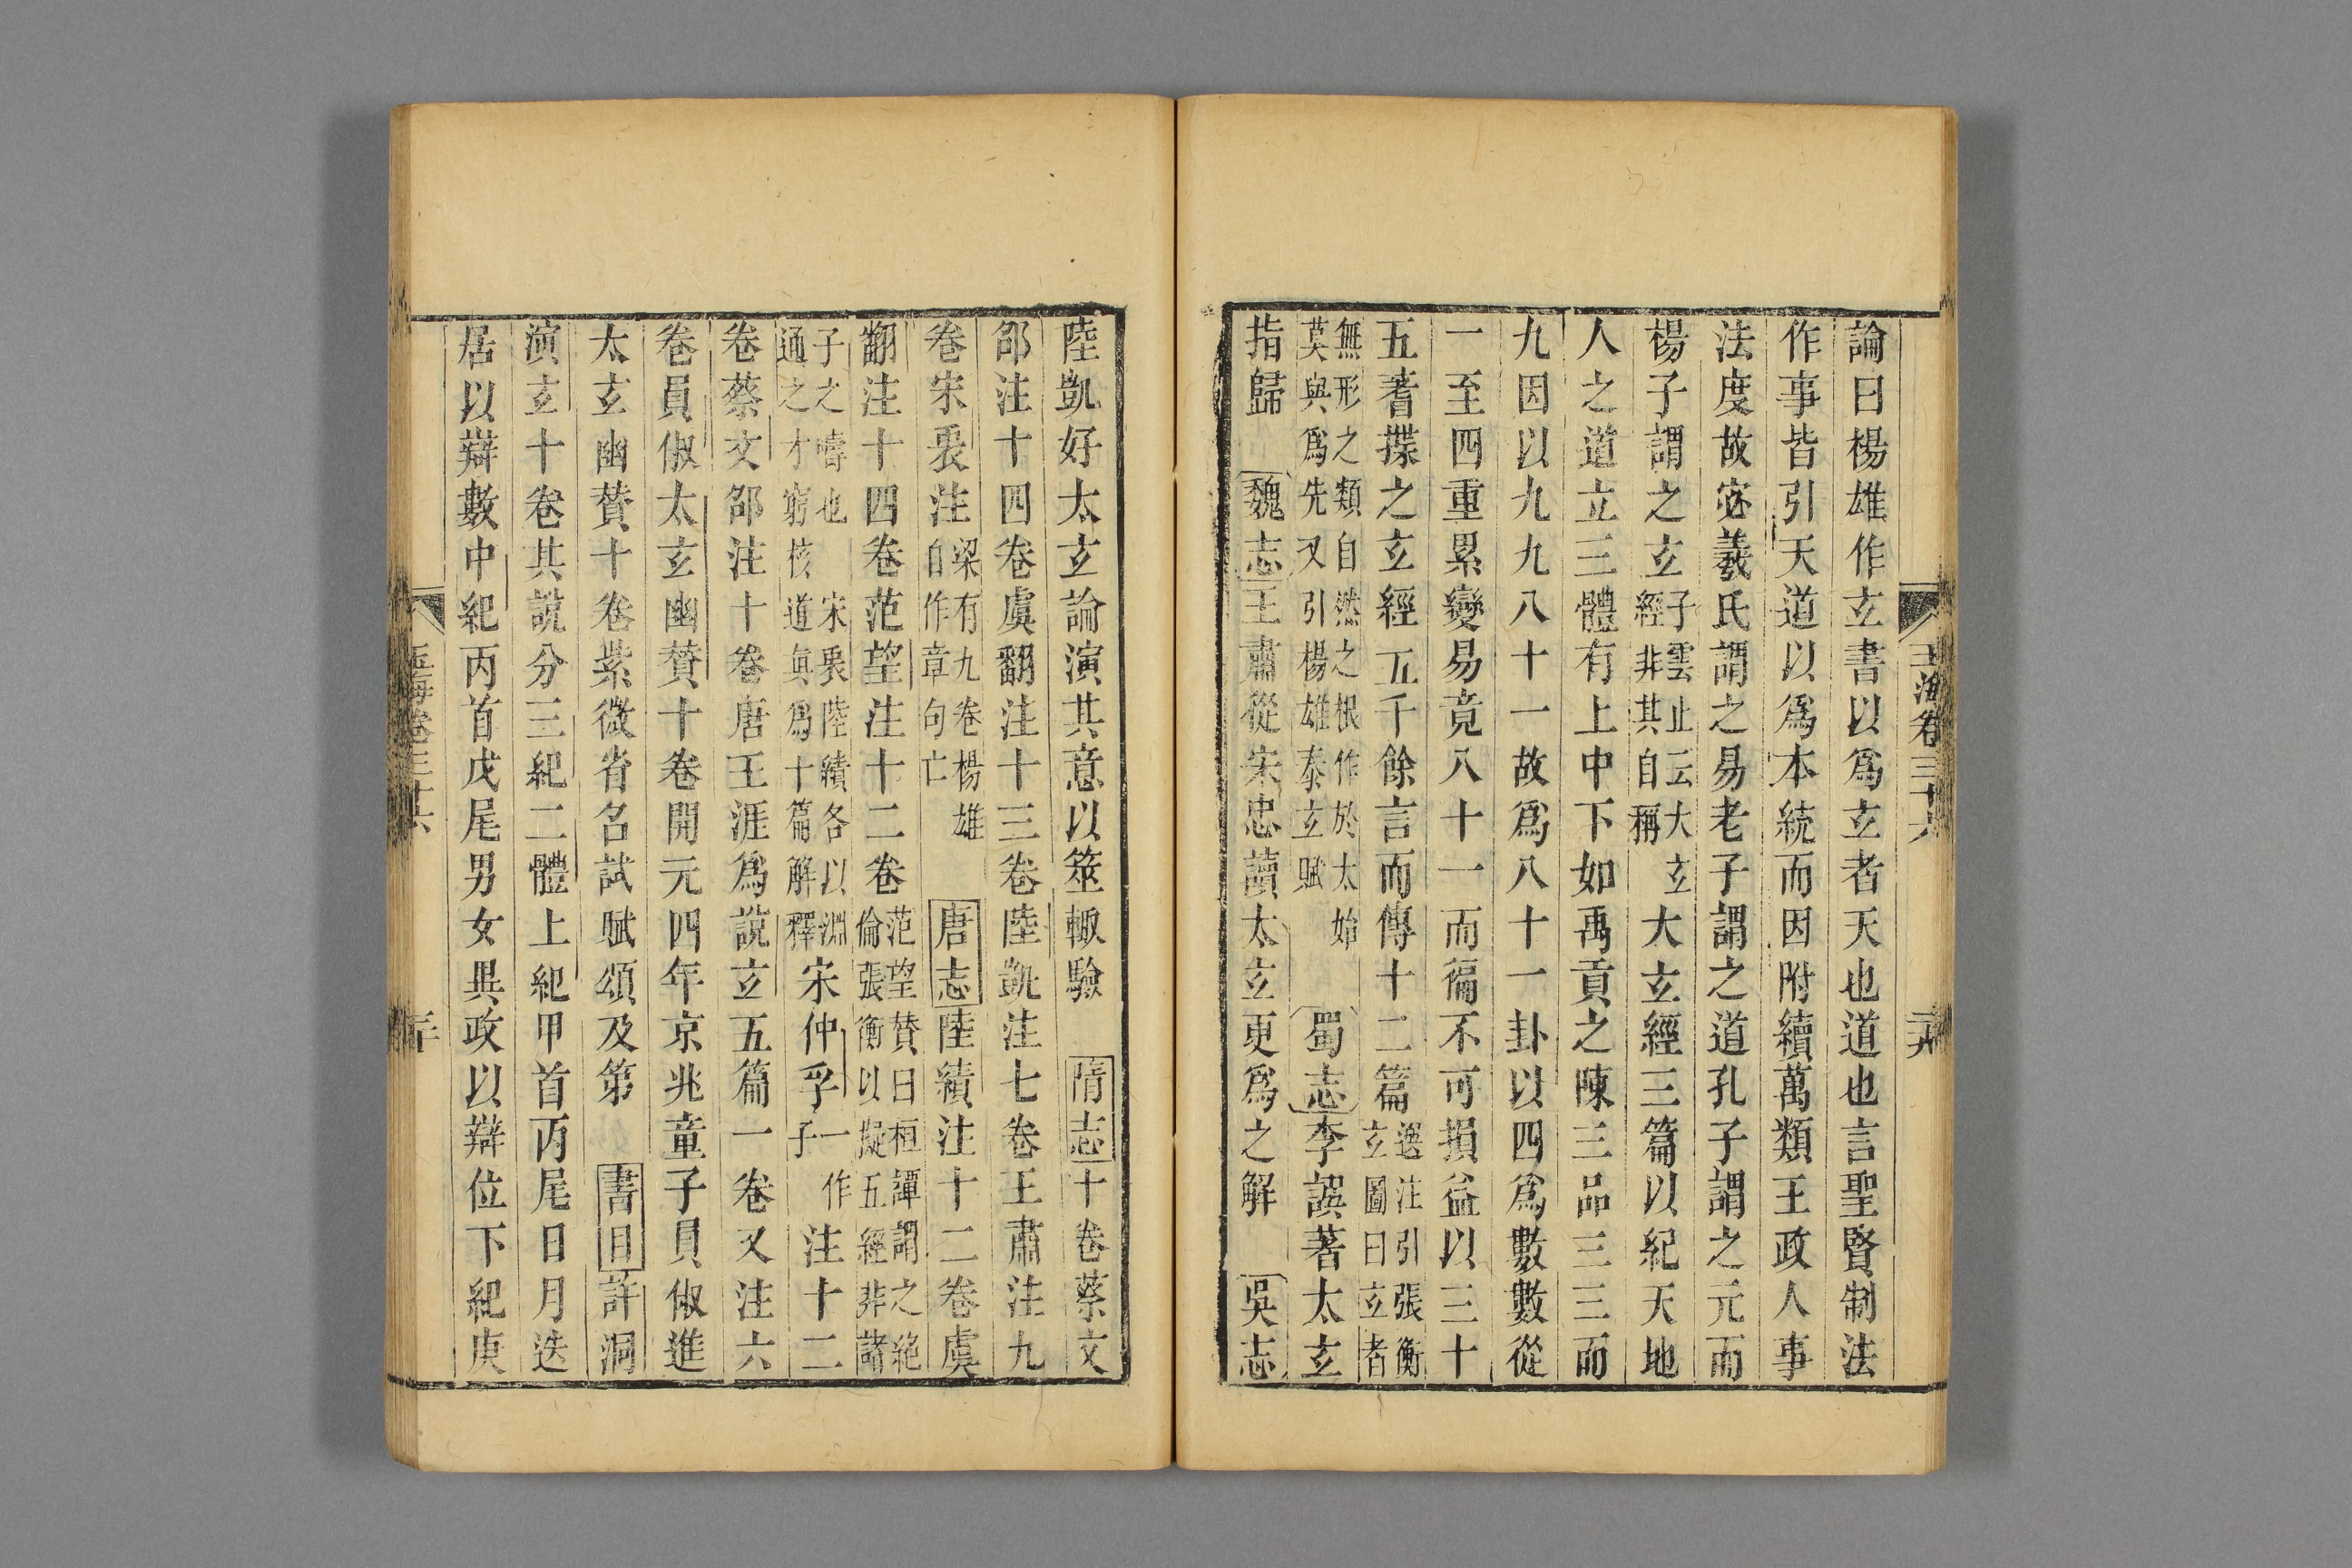 玉海卷三十六
二十九
論曰楊雄作玄書以爲玄者天也道也言聖賢制法
作事皆引天道以爲本統而因附續萬類王政人事
法度故宓羲氏謂之易老子謂之道孔子謂之元而
楊子謂之玄子雲止云大玄經非其自稱大玄經三篇以紀天地
人之道立三體有上中下如禹貢之陳三品三三而
九因以九九八十一故爲八十一卦以四爲數數從
一至四重累變易竟八十一而徧不可損益以三十
五蓍揲之玄經五千餘言而傳十二篇選注引張衡玄圖曰玄者
無形之類自然之根作於太始莫與爲先又引楊雄泰玄賦蜀志李譔著太玄
指歸魏志王肅從宋忠讀太玄更爲之解吳志
陸凱好太玄論演其意以筮輒驗隋志十卷蔡文
邵注十四卷虞翻注十三卷陸凱注七卷王肅注九
卷宋衷注梁有九卷楊雄自作章句亡唐志陸績注十二卷虞
翻注十四卷范望注十二卷范望贊曰桓譚謂之絶倫張衡以擬五經非諸
子之疇也通之才窮核道眞宋衷陸績各以淵爲十篇解釋宋仲孚一作子注十二
卷蔡文邵注十卷唐王涯爲說玄五篇一卷又注六
卷員俶太玄幽贊十卷開元四年京兆童子員俶進
太玄幽贊十卷紫微省名試賦頌及第書目許洞
演玄十卷其說分三紀二體上紀甲首丙尾日月迭
居以辯數中紀丙首戊尾男女異政以辯位下紀庚
玉海卷三十六
三十